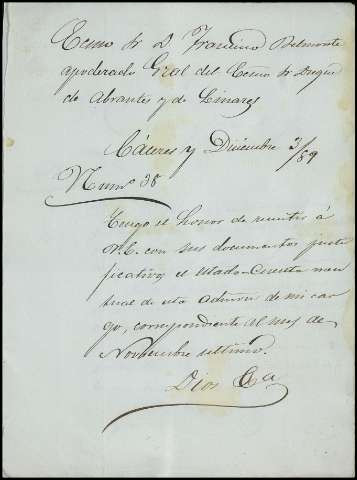 Ecmo Sr D Francisco Belmonte
apoderado Gral del Ecmo Sr Duque
de Abrantes y de Linares
Cáceres y Diciembre 3/89
Numo 38
Tengo el honor de remitir á
V.E. con sus documentos justi
ficativos el Estado-Cuenta men
sual de esta admon de mi car
go, correspondiente al mes de
Noviembre último.
Dios &a